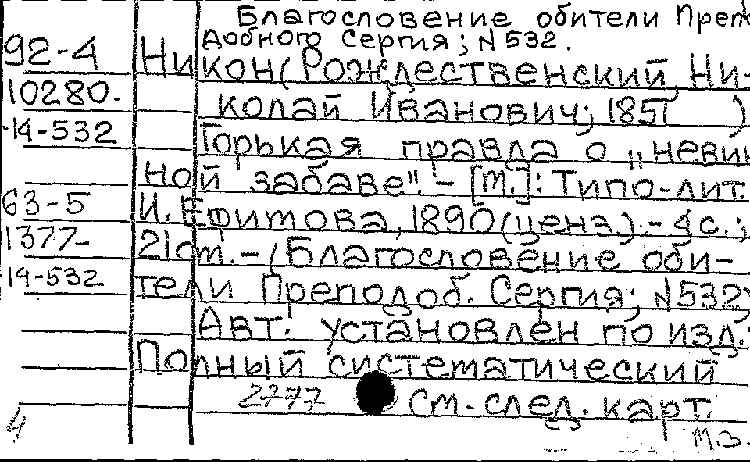 Благословение обители Преп
добного Сергия; N 532.
92-4 Никон(Рождественский, Ни-
10280. колай Иванович; 1851 )
14-532 Горькая правда о „невин
ной забаве". - [М.]: Типо-лит.
63-5 И. Ефимова, 1890(ценз.).- 4с.;
1377- 21см.-(Благословение оби-
14-532 тели Преподоб. Сергия; N532)
Авт. установлен по изд.:
Полный систематический
2777 См. след. карт.
4 М.З.